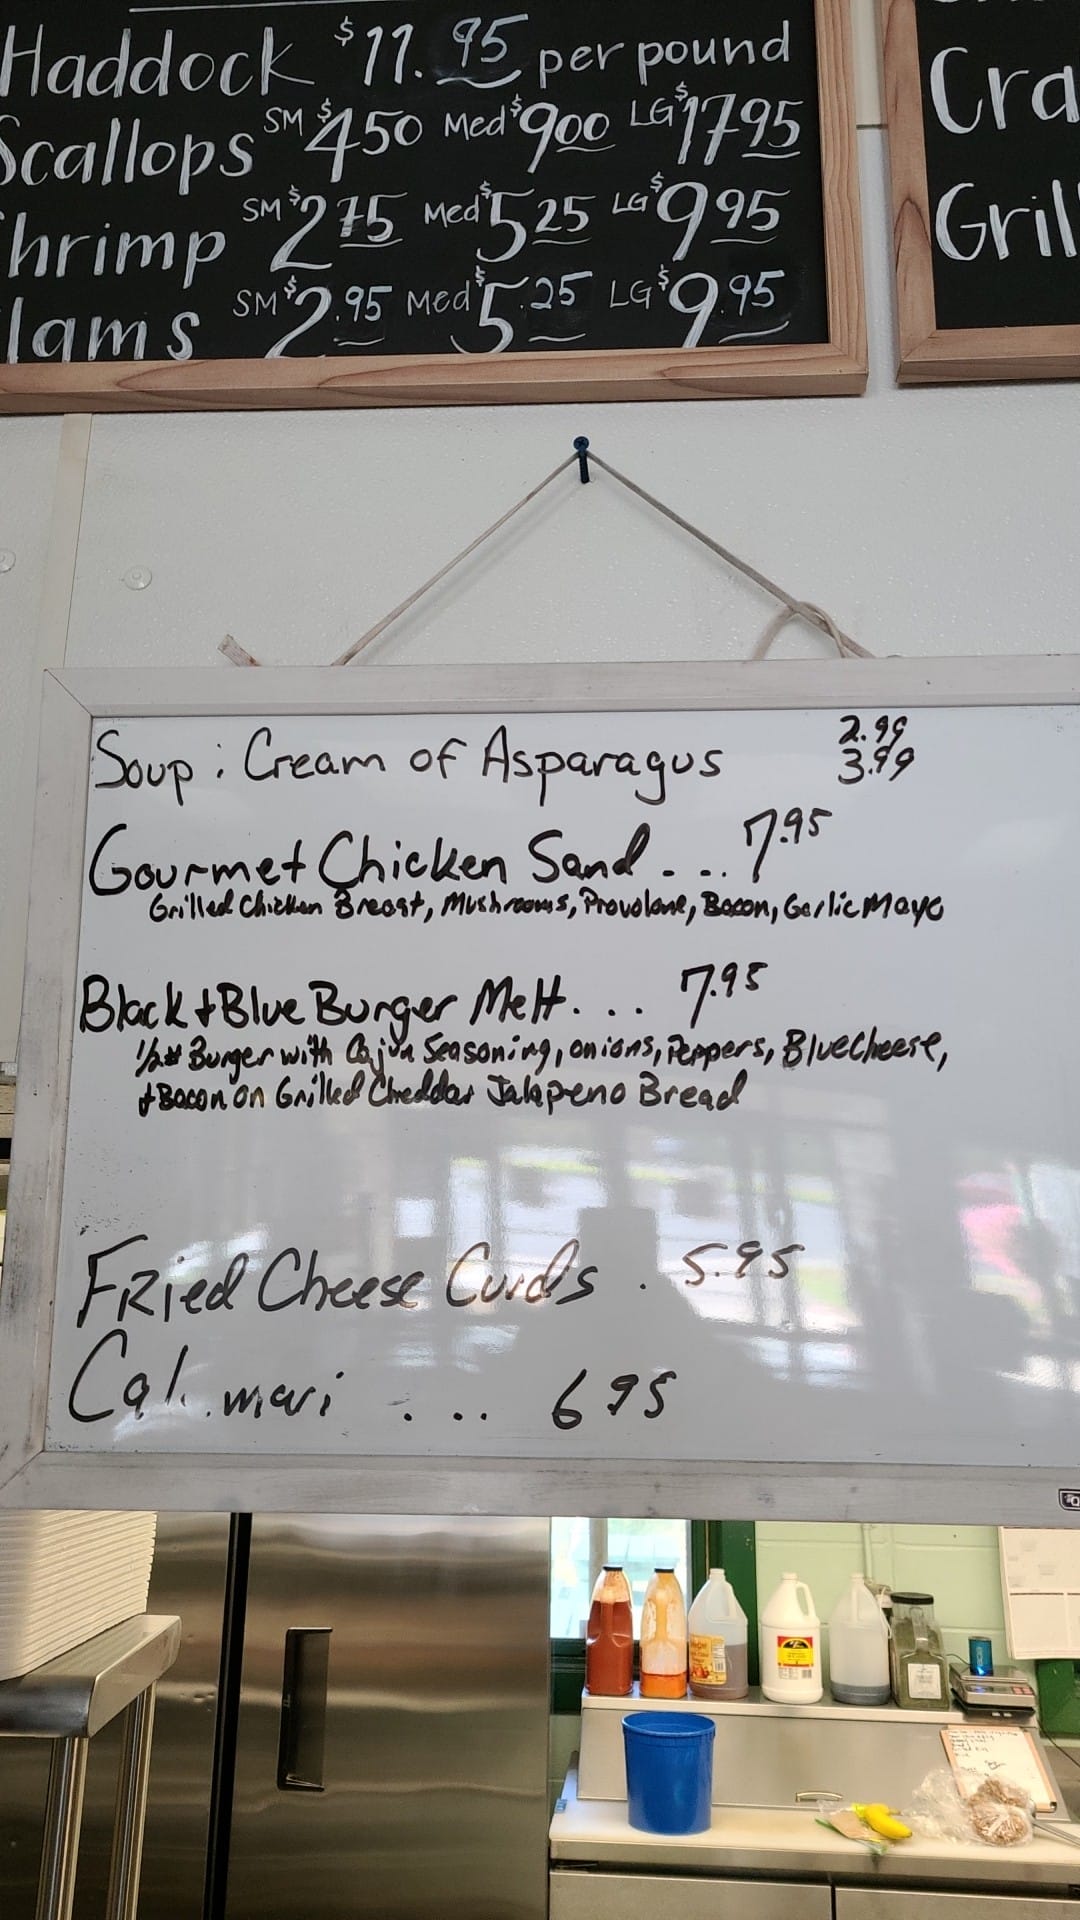 Haddock $11.95 per pound
Scallops SM $4.50 Med $9.00 LG $17.95
hrimp SM $2.75 Med $5.25 LG $9.95
lams SM $2.95 Med $5.25 LG $9.95
Cra
Gril
Soup: Cream of Asparagus 2.99
3.99
Gourmet Chicken Sand.... 7.95
Grilled Chicken Breast, Mushrooms, Provolone, Bacon, Garlic Mayo
Black + Blue Burger Melt.... 7.95
1/2# Burger with Cajun Seasoning, onions, Peppers, Blue Cheese,
+ Bacon on Grilled Cheddar Jalapeno Bread
Fried Cheese Curds . 5.95
Cal. mari .... 6 95